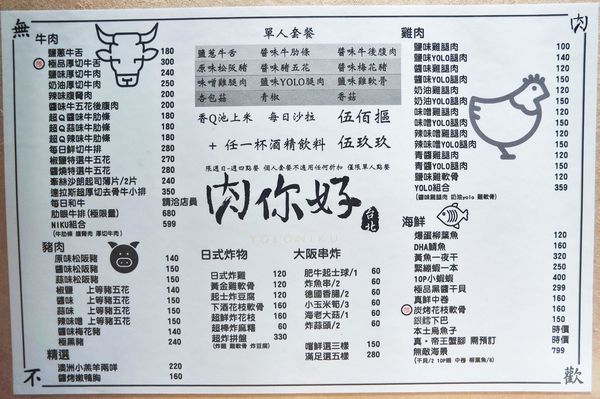 無
肉
不
歡
牛肉
鹽蔥牛舌 180
極品厚切牛舌 300
鹽味厚切牛肉 240
奶油厚切牛肉 250
辣味腹脅肉 200
醬味牛五花後腹肉 200
超Q醬味牛肋條 200
超Q蒜味牛肋條 200
超Q辣味牛肋條 200
每日鮮切牛排 280
椒鹽特選牛五花 250
醬燒特選牛五花 250
牽絲沙朗起司薄片/2片 240
達拉斯超厚切去骨牛小排 350
每日和牛 請洽店員
肋眼牛排(極限量) 680
NIKU組合 599
(牛肋條 腹脅肉 厚切牛肉)
豬肉
原味松阪豬 140
鹽味松阪豬 150
蒜味松阪豬 150
椒鹽 上等豬五花 160
醬味 上等豬五花 160
蒜味 上等豬五花 160
辣味噌 上等豬五花 160
醬味梅花豬 140
極黑豬 240
精選
澳洲小羔羊兩咩 220
醬烤嫩鴨胸 160
單人套餐
鹽蔥牛舌 醬味牛肋條 醬味牛後腹肉
原味松阪豬 醬味豬五花 醬味梅花豬
味噌雞腿肉 鹽味YOLO腿肉 鹽味雞軟骨
杏包菇 青椒 香菇
香Q池上米 每日沙拉 伍佰摳
+ 任一杯酒精飲料 伍玖玖
限週日-週四點餐 個人套餐不適用任何折扣 僅限單人點餐
肉你好
台北
YOLONIKU
日式炸物
日式炸雞 120
黃金雞軟骨 120
起士炸豆腐 120
下酒花枝軟骨 160
超鮮炸花枝 160
超棒炸麻糬 60
超炸拼盤 330
(炸雞 雞軟骨 炸豆腐)
大阪串炸
肥牛起士球/1 60
炸魚串/2 60
德國香腸/2 60
小玉米筍/3 60
海老大菇/1 60
炸蒜頭/2 60
嚐鮮選三樣 150
滿足選五樣 280
雞肉
鹽味雞腿肉 100
鹽味YOLO腿肉 140
醬味雞腿肉 120
醬味YOLO腿肉 150
奶油雞腿肉 120
奶油YOLO腿肉 150
味噌雞腿肉 120
味噌YOLO腿肉 150
辣味噌雞腿肉 120
辣味噌YOLO腿肉 150
青醬雞腿肉 120
青醬YOLO腿肉 150
鹽味雞軟骨 120
YOLO組合 359
(鹽味雞腿肉 奶油yolo 雞軟骨)
海鮮
爆蛋柳葉魚 120
DHA鯖魚 160
黃魚一夜干 320
緊繃蝦一本 250
10P小蝦蝦 400
極品黑醬干貝 299
真鮮中卷 160
炭烤花枝軟骨 150
銀鱈下巴 150
本土烏魚子 時價
真・帝王蟹腳 需預訂 時價
無敵海景 799
(干貝/2 10P蝦 中卷 柳葉魚/8)